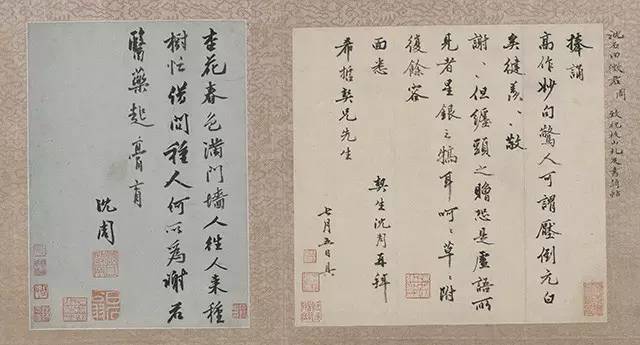 沈石田徵君 周 致祝枝山札及書詩帖
捧誦
高作妙句驚人可謂壓倒元白
矣健羨〻〻敬
謝〻但纏頭之贈恐是虛語所
見者呈銀之犒耳呵〻草〻附
復餘容
面悉
契生沈周再拜
希哲契兄先生
七月五日具
杏花春色滿門墻人往人來種
樹忙借問種人何以為謝君
醫藥起膏肓
沈周